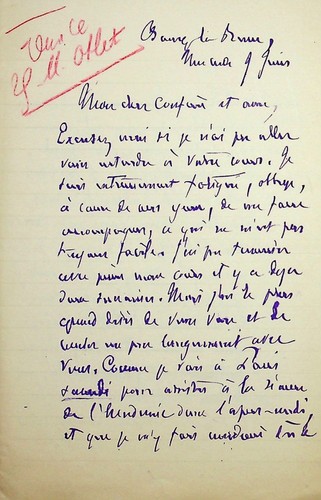 Vu ce
M. Otlet
Bourg la Reine
9 Juin
Mon cher Confrère et ami,
Excusez moi si je n'ai pu aller
vous entendre à votre cours. Je
suis extrêmement fatigué, obligé,
à cause de mes yeux, de me faire
accompagner, ce qui ne m'est pas
toujours facile. J'ai pu terminer
cette année mon cours il y a déjà
deux semaines. Mais j'ai le plus
grand désir de vous voir et de
causer un peu longuement avec
vous. Comme je vais à Paris
samedi pour assister à la séance
de l'Académie dans l'après-midi,
et que je n'y fais